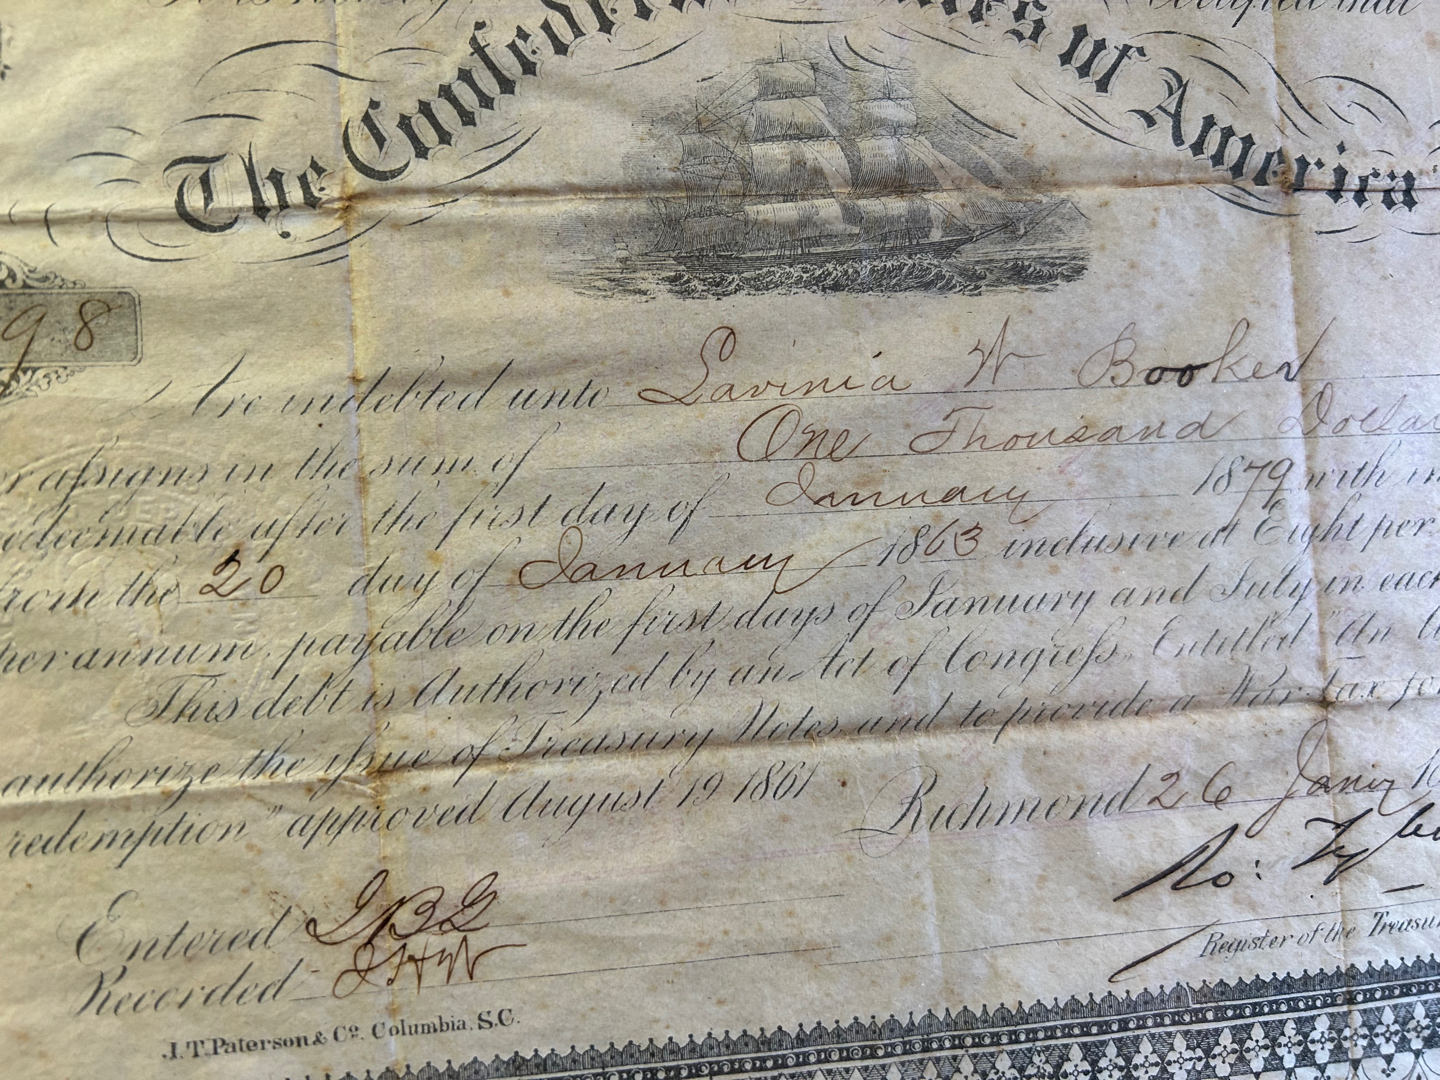 The Confederate States of America
98
Are indebted unto Lavinia W Booker
assigns in the sum of One Thousand Dollar
redeemable after the first day of January 1879 with in
from the 20 day of January 1863 inclusive at Eight per
per annum, payable on the first days of January and July in each
This debt is Authorized by an Act of Congress, Entitled "An
authorize the issue of Treasury Notes and to provide a War tax fo
redemption" approved August 19 1861
Richmond 26 Jany 18
Ro: Tyler
Entered JBG
Register of the Treasu
Recorded JHW
J.T. Paterson & Co. Columbia. S.C.